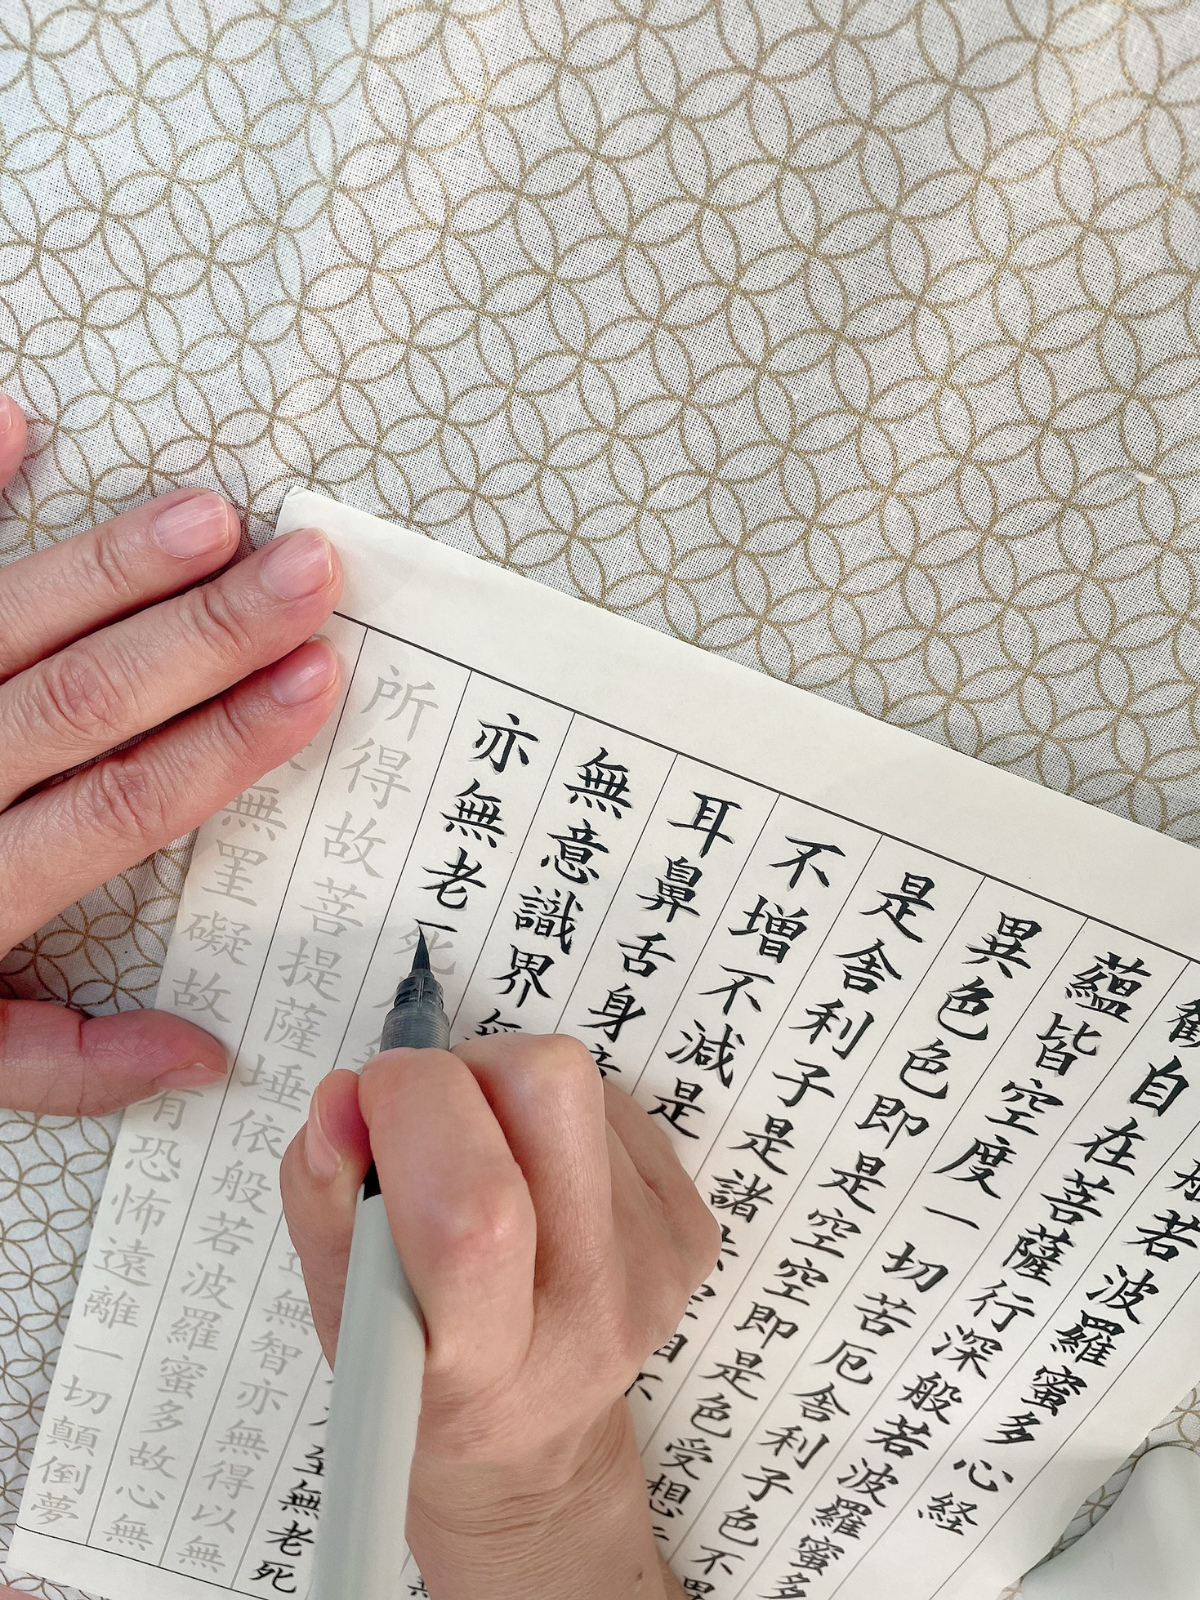 若波羅蜜多心経
観自在菩薩行深般若波羅蜜多
蘊皆空度一切苦厄舎利子色不異
異色色即是空空即是色受想
是舎利子是諸
不増不減是
耳鼻舌身
無意識界無 至無老死
亦無老死 無智亦無得以無
所得故菩提薩埵依般若波羅蜜多故心無
無罣礙故 有恐怖遠離一切顛倒夢